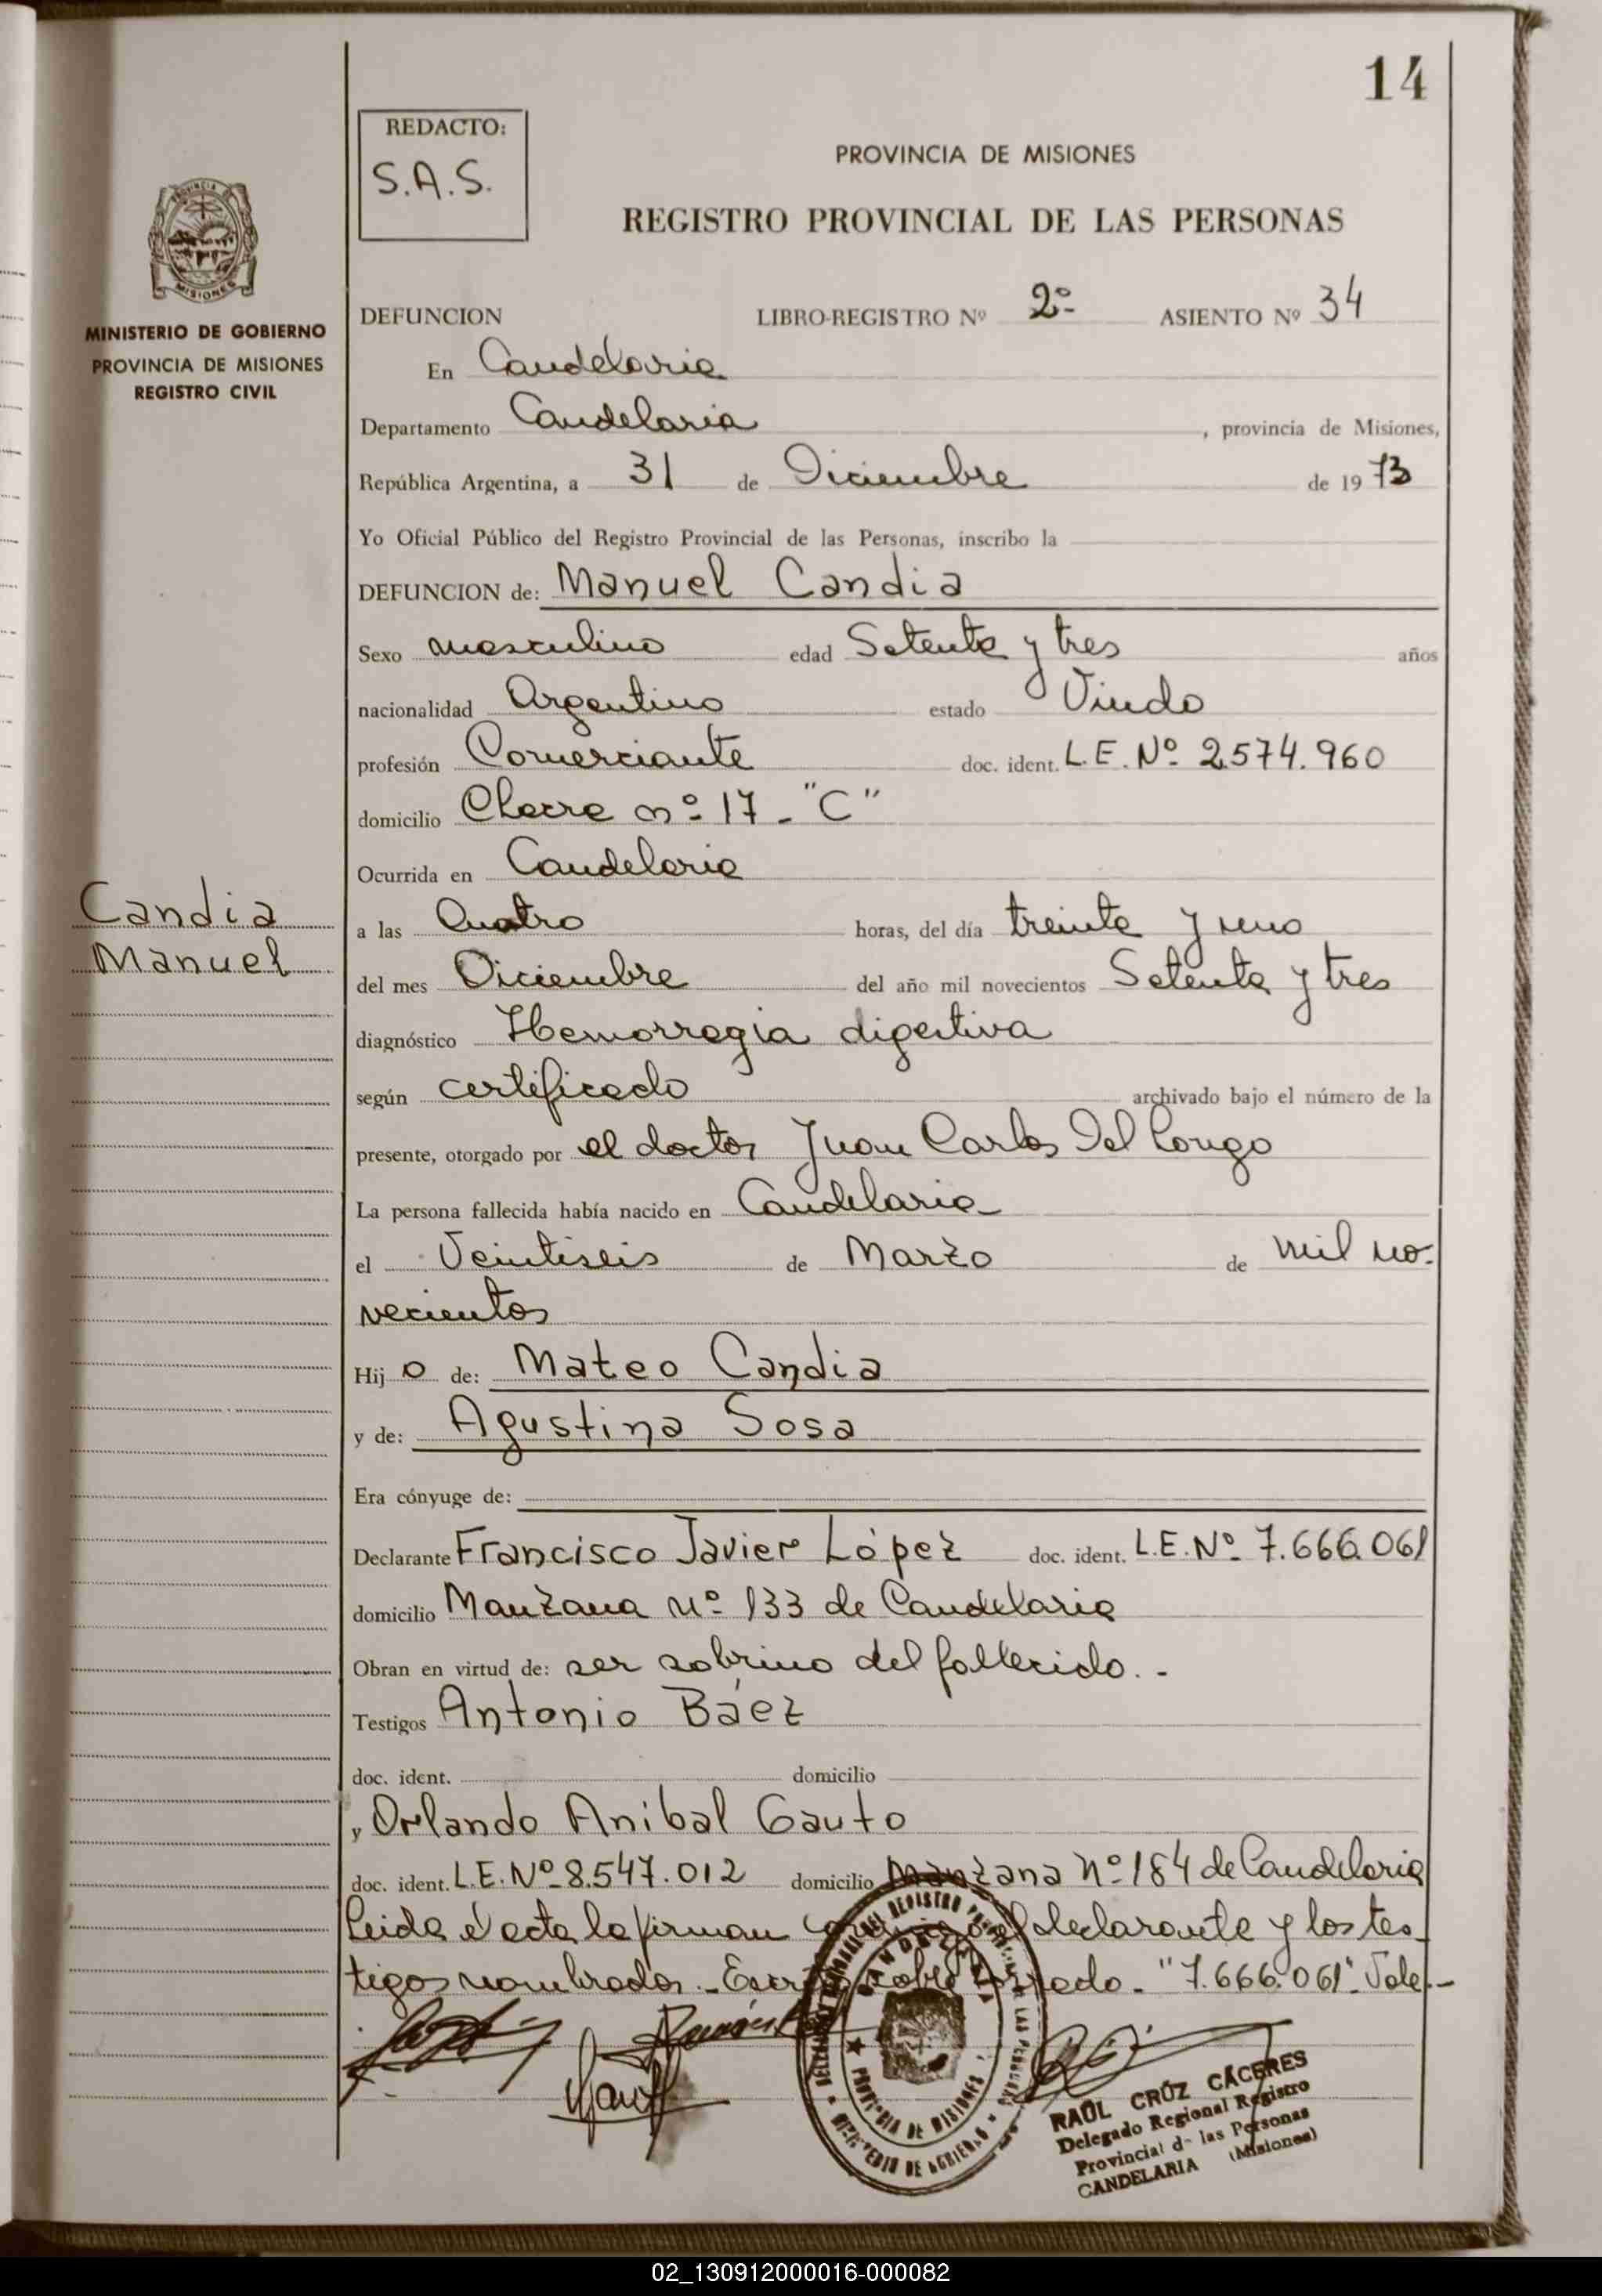 14
REDACTO:
S.A.S.
PROVINCIA DE MISIONES
REGISTRO PROVINCIAL DE LAS PERSONAS
MISIONES
MINISTERIO DE GOBIERNO
PROVINCIA DE MISIONES
REGISTRO CIVIL
DEFUNCION LIBRO-REGISTRO Nº 2º ASIENTO Nº 34
En Candelaria
Departamento Candelaria, provincia de Misiones,
República Argentina, a 31 de Diciembre de 1973
Yo Oficial Público del Registro Provincial de las Personas, inscribo la
DEFUNCION de: Manuel Candia
Sexo masculino edad Setenta y tres años
nacionalidad Argentino estado Viudo
profesión Comerciante doc. ident. L.E. Nº 2.574.960
domicilio Chacra nº 17 - "C"
Ocurrida en Candelaria
Candia
Manuel
a las Cuatro horas, del día treinta y uno
del mes Diciembre del año mil novecientos Setenta y tres
diagnóstico Hemorragia digestiva
según certificado archivado bajo el número de la
presente, otorgado por el doctor Juan Carlos Del Longo
La persona fallecida había nacido en Candelaria
el Veintiseis de Marzo de mil no-
vecientos
Hijo de: Mateo Candia
y de: Agustina Sosa
Era cónyuge de:
Declarante Francisco Javier López doc. ident. L.E. Nº 7.666.061
domicilio Manzana nº 133 de Candelaria
Obran en virtud de: ser sobrino del fallecido. -
Testigos Antonio Báez
doc. ident. domicilio
y Orlando Anibal Gauto
doc. ident. L.E. Nº 8.547.012 domicilio Manzana nº 184 de Candelaria
Leida el acta la firman conmigo el declarante y los tes-
tigos nombrados. - Escrito sobre borrado - "7.666.061". Vale. -
PROVINCIA DE MISIONES
RAÚL CRÚZ CÁCERES
Delegado Regional Registro
Provincial d- las Personas
CANDELARIA (Misiones)
02_130912000016-000082